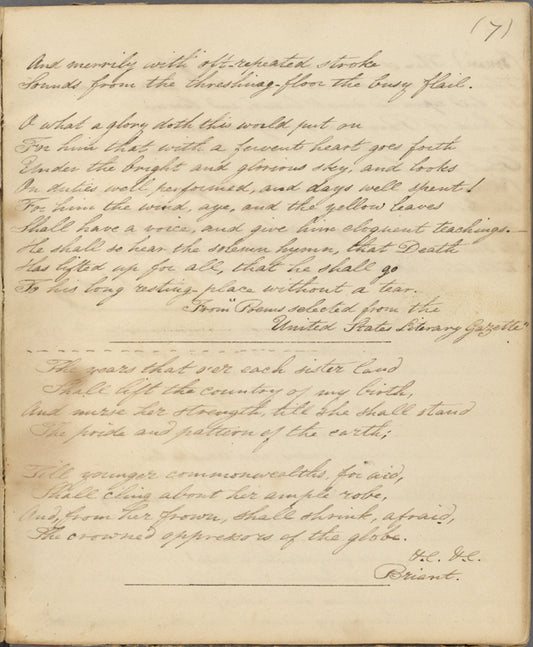 (7)
And merrily with oft-repeated stroke
Sounds from the threshing-floor the busy flail.
O what a glory doth this world put on
For him that with a fervent heart goes forth
Under the bright and glorious sky, and looks
On duties well performed, and days well spent!
For him the wind, aye, and the yellow leaves
Shall have a voice, and give him eloquent teachings.—
He shall so hear the solemn hymn, that Death
Has lifted up for all, that he shall go
To his long resting-place without a tear.
From "Poems selected from the
United States Literary Gazette"
The years that o'er each sister land
Shall lift the country of my birth,
And nurse her strength till she shall stand
The pride and pattern of the earth;
Till younger commonwealths, for aid,
Shall cling about her ample robe,
And, from her frown, shall shrink, afraid,
The crowned oppressors of the globe.
&c. &c.
Briant.